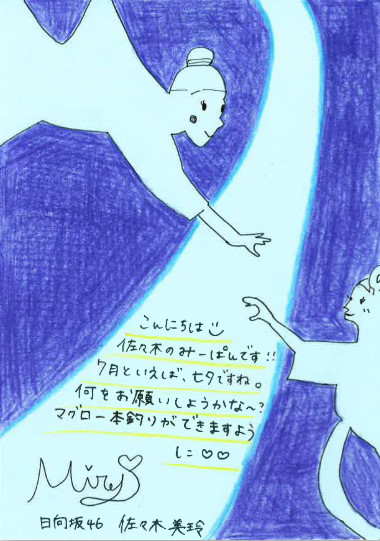 こんにちは
佐々木のみーぱんです!!
7月といえば、七夕ですね。
何をお願いしようかな〜?
マグロ一本釣りができますよう
に♡♡
Mirei♡
日向坂46 佐々木美玲